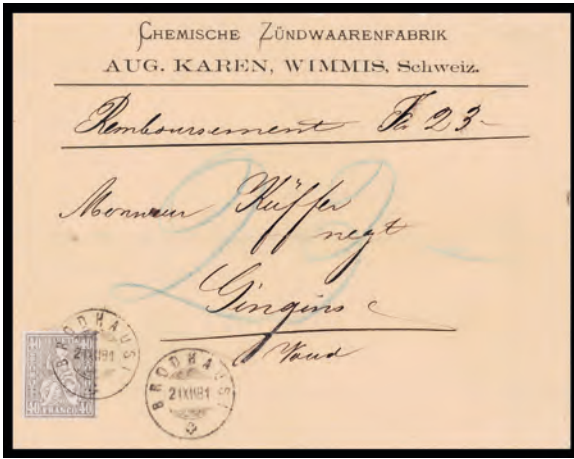 CHEMISCHE ZÜNDWAARENFABRIK
AUG. KAREN, WIMMIS, Schweiz.
Remboursement Fr 23-
23
Monsieur Küffer
negt
Gingins
Vaud
40 40
40 FRANCO 40
BRODHAUSI
21XII81
BRODHAUSI
21XII81